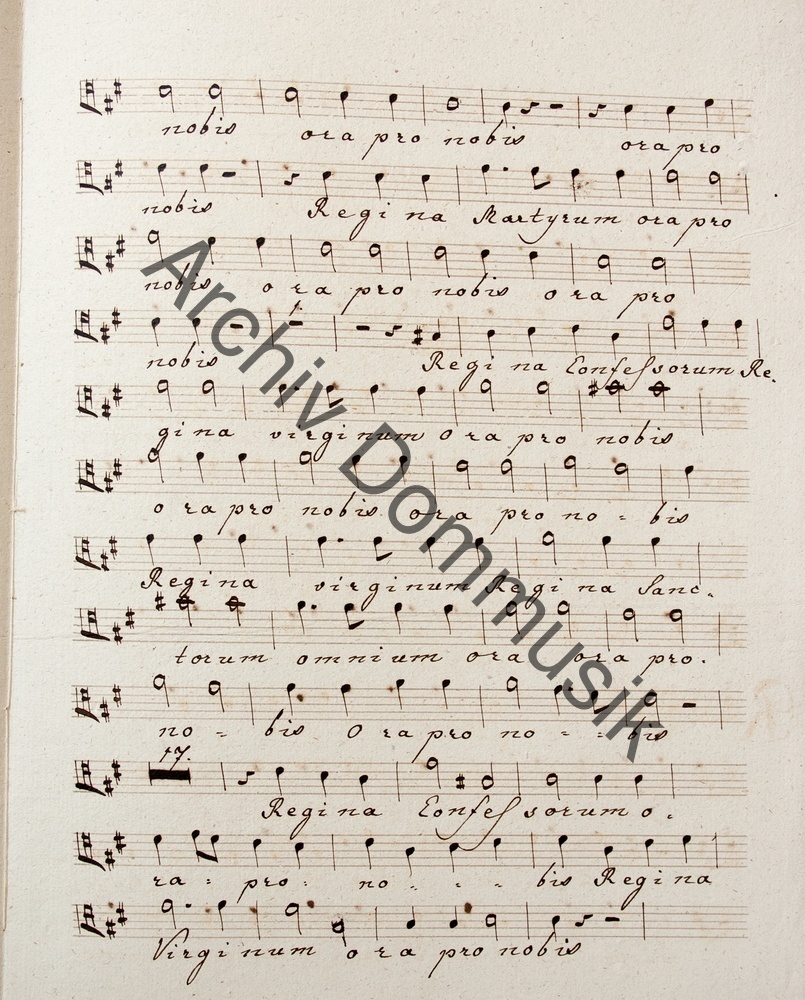 nobis ora pro nobis ora pro
nobis Regina Martyrum ora pro
nobis o ra pro nobis o ra pro
nobis Regina Confessorum Re-
gina virginum Ora pro nobis
o ra pro nobis ora pro no = bis
Regina virginum Regina Sanc-
torum omnium ora ora pro.
no = bis Ora pro no = = bis
17.
Regina Confessorum o.
ra = pro = no = = = bis Regina
Virginum ora pro nobis
Archiv Dommusik